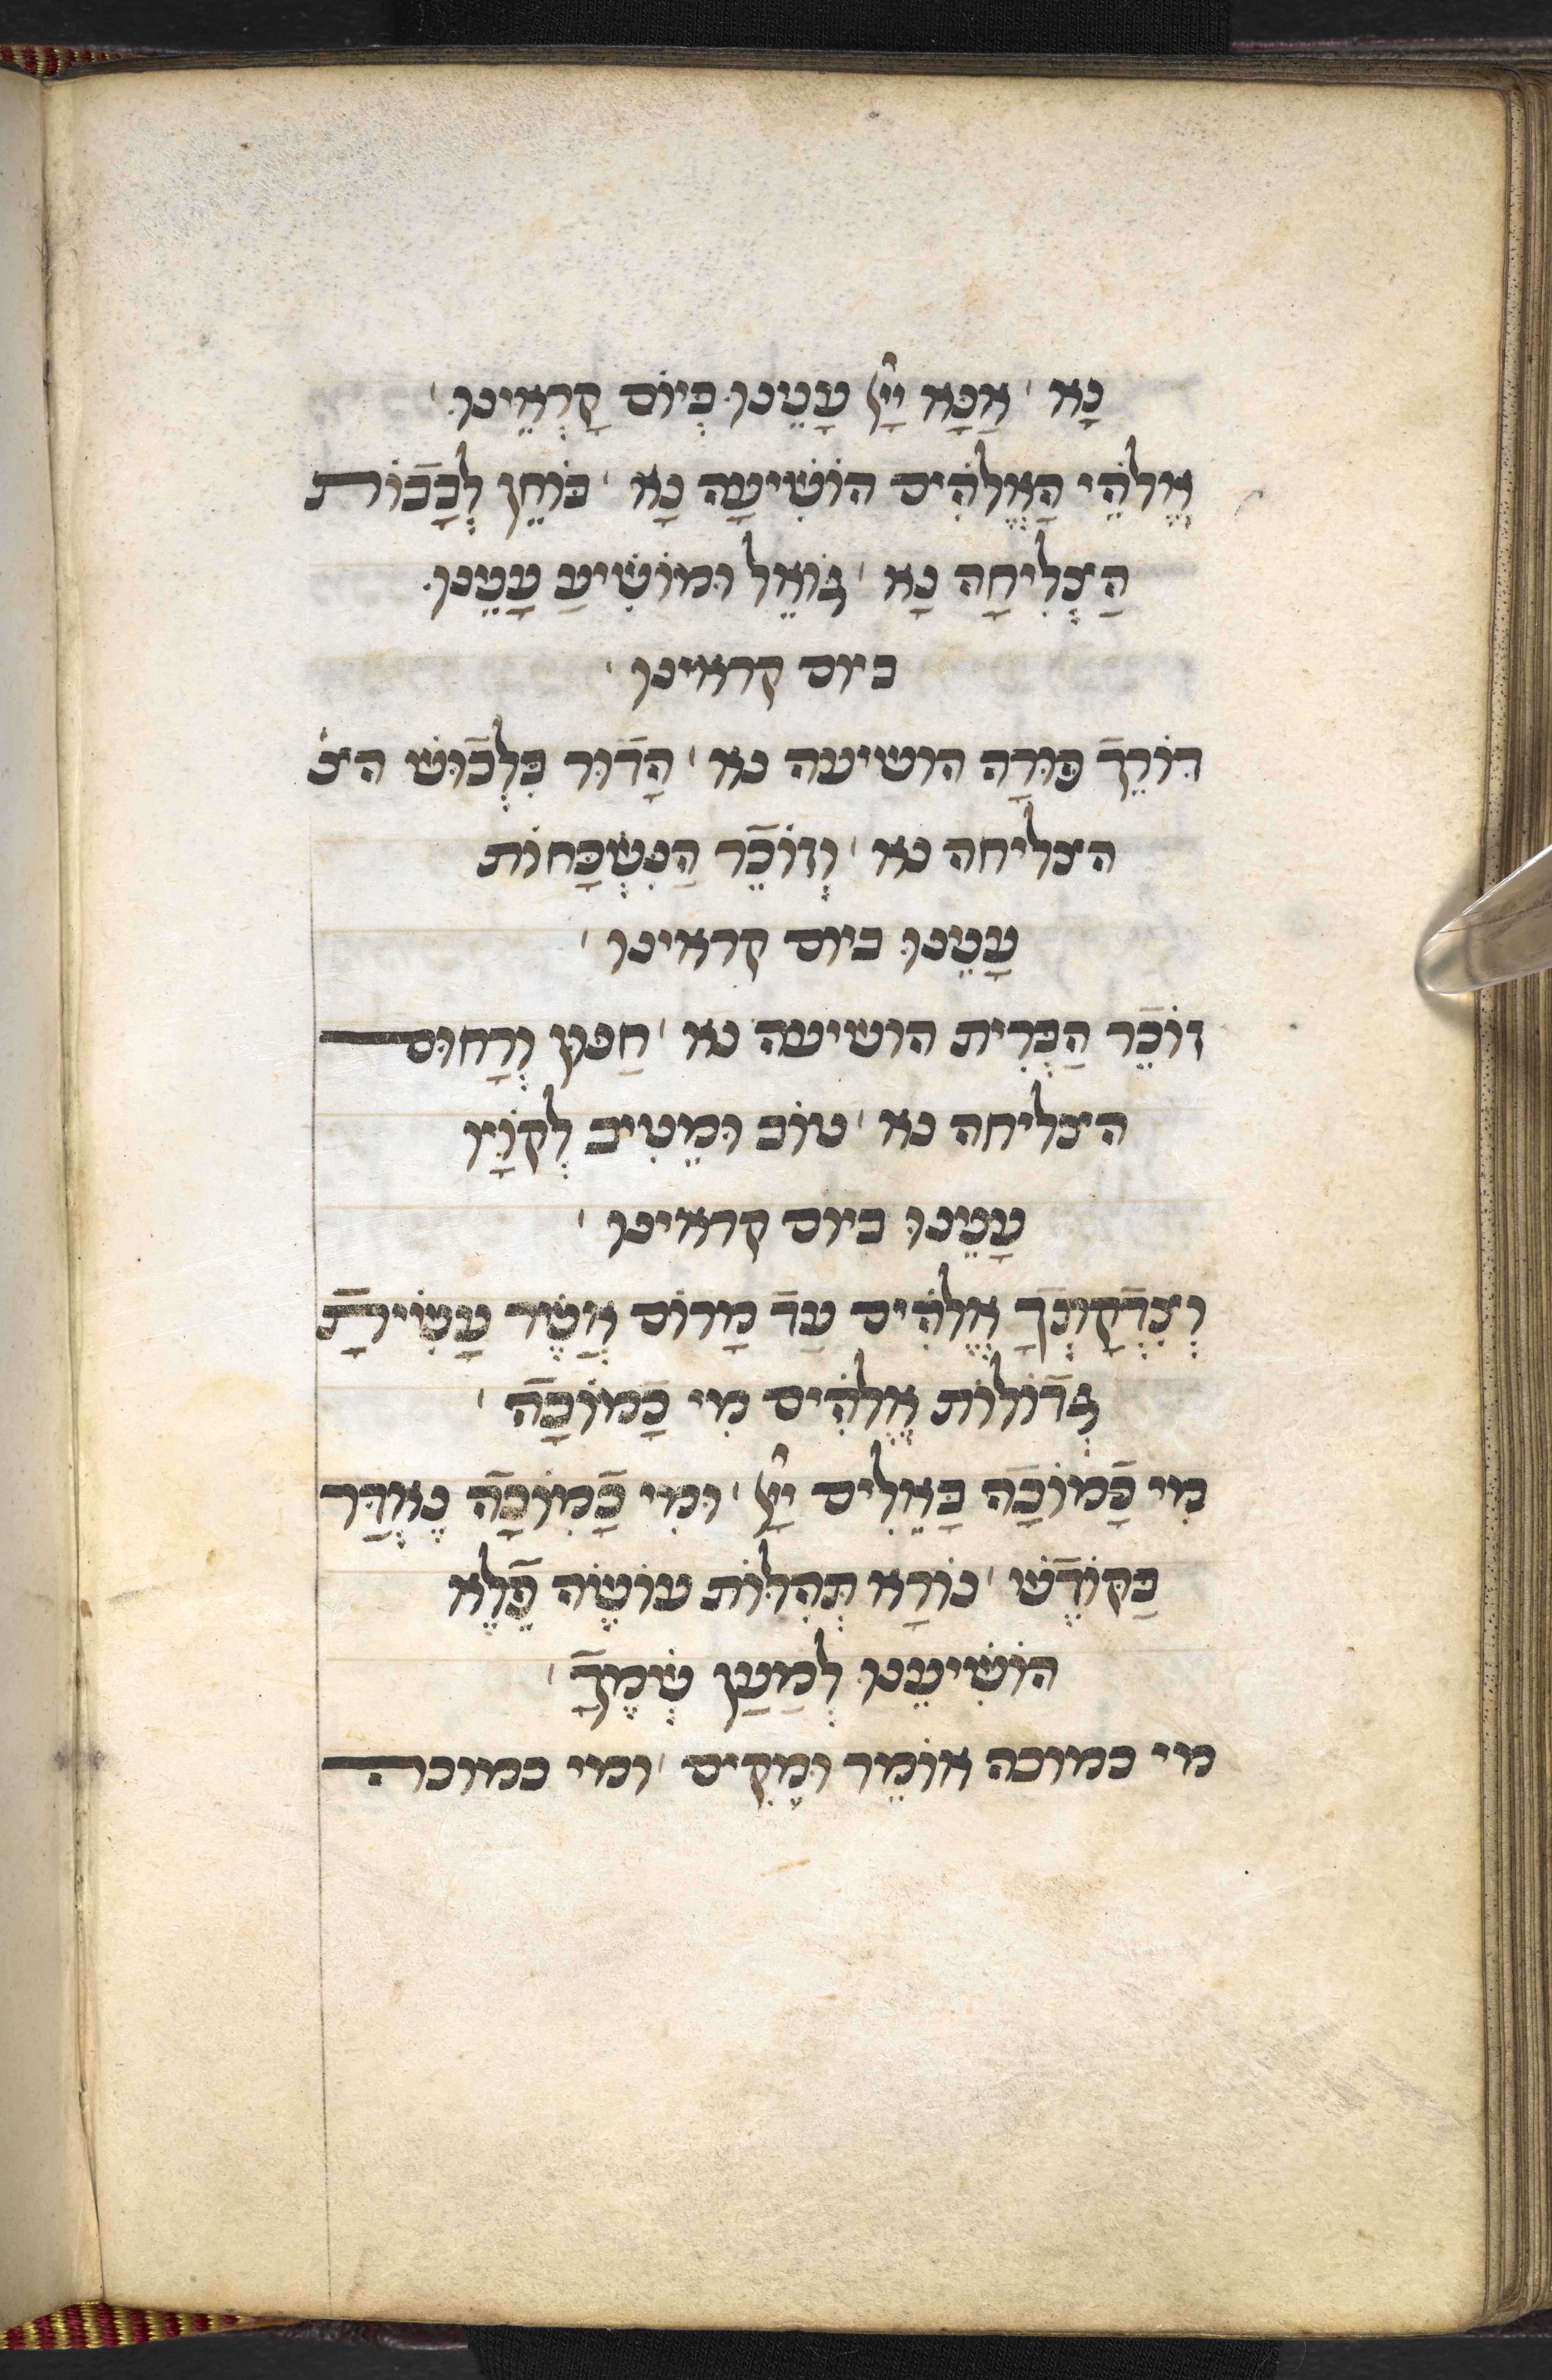 נָא ׳ אַנָא יָיָ עֲנֵנוּ בְיוֹם קָרְאֵינוּ ׳
אֱלֹהֵי הָאֱלֹהִים הוֹשִׁיעָה נָא ׳ בּוֹחֵן לְבָבוֹת
הַצְלִיחָה נָא ׳ גּוֹאֵל וּמוֹשִׁיעַ עֲנֵנוּ
ביום קראינו ׳
דּוֹרֵךְ פּוּרָה הושיעה נא ׳ הָדוּר בִּלְבוּשׁ הצ
הצליחה נא ׳ וְזוֹכֵר הַנִשְׁכָּחוֹת
עֲנֵנוּ ביום קראינו ׳
זוֹכֵר הַבְּרִית הושיעה נא ׳ חַנּוּן וְרָחוּם
הצליחה נא ׳ טוֹב וּמֵטִיב לְקוֹוָיו
עֲנֵנוּ ביום קראינו ׳
וְצִדְקָתְךָ אֱלֹהִים עַד מָרוֹם אֲשֶׁר עָשִׂיתָ
גְדוֹלוֹת אֱלֹהִים מִי כָמוֹכָה ׳
מִי כָמוֹכָה בָּאֵלִים יָיָ ׳ וּמִי כָּמוֹכָה נֶאְדַּר
בַּקּוֹדֶשׁ ׳ נוֹרָא תְּהִלּוֹת עוֹשֶׂה פֶלֶא
הוֹשִׁיעֵנוּ לְמַעַן שְׁמֶךָ ׳
מי כמוכה אוֹמֵר וּמֵקִים ׳ ומי כמוכה